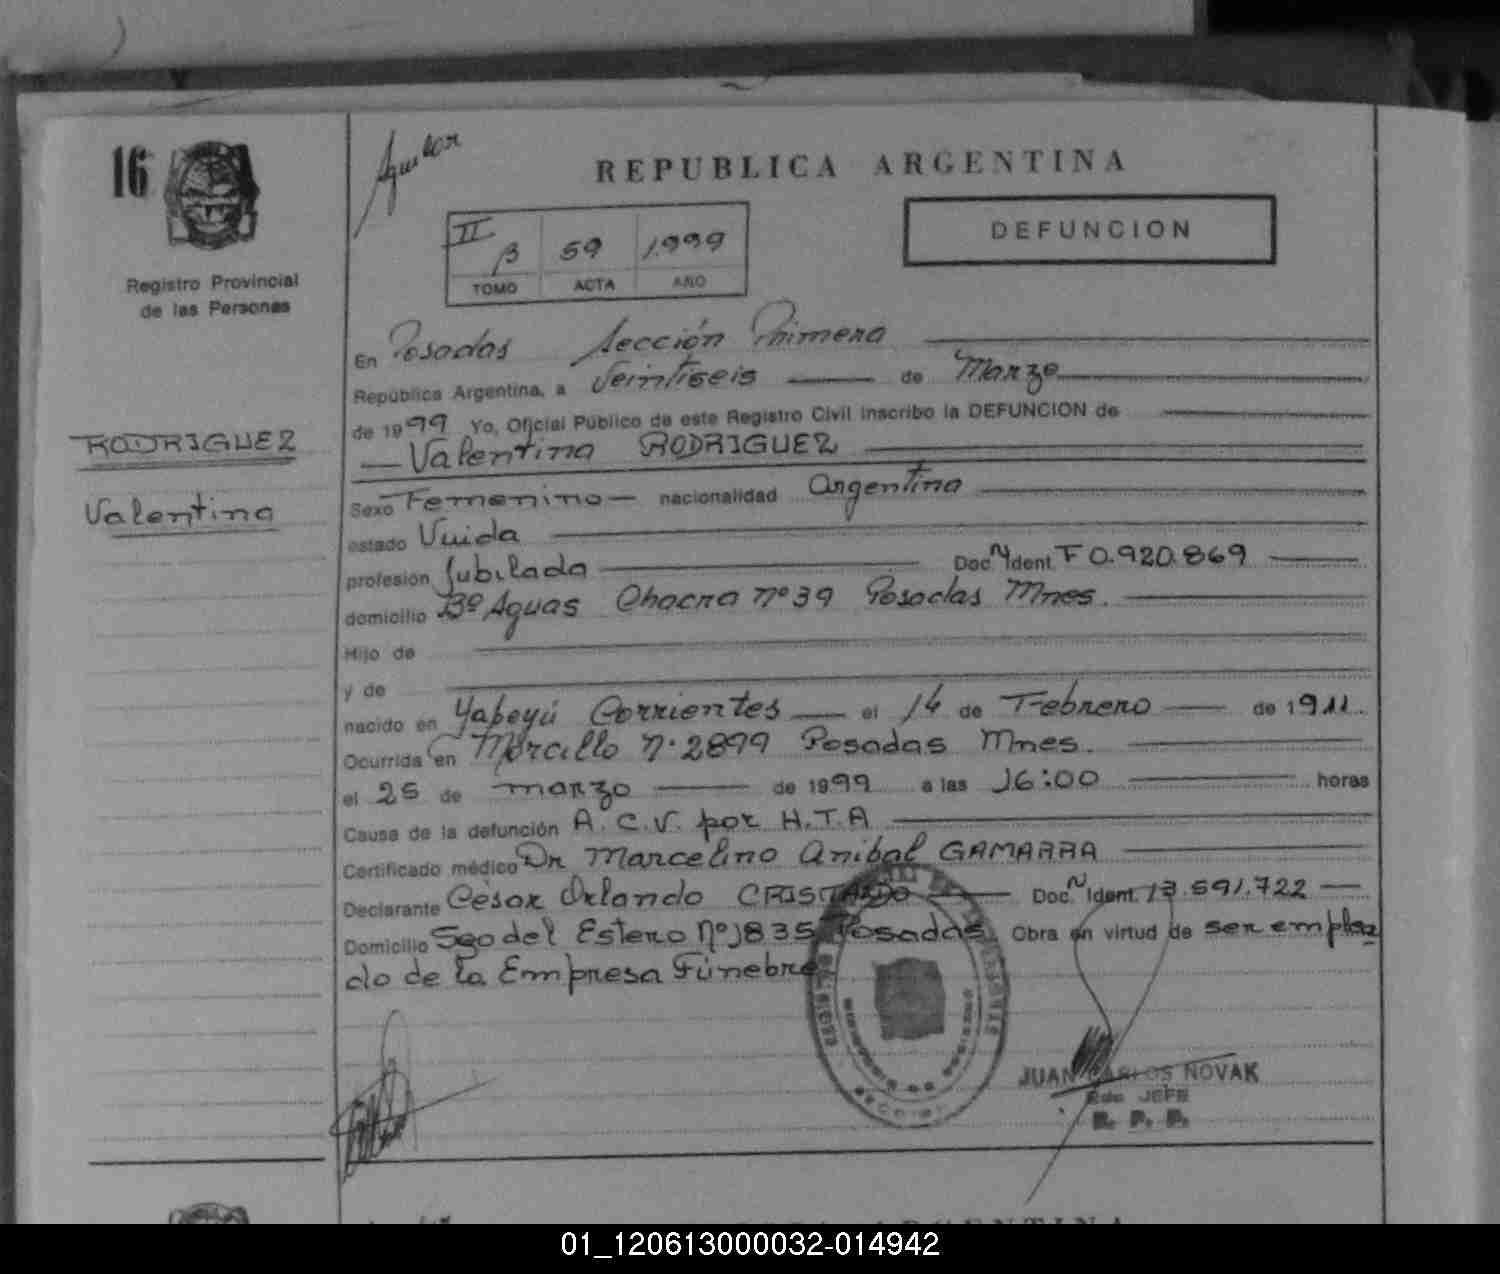 16
Aguilar
REPUBLICA ARGENTINA
DEFUNCION
II
B 59 1.999
TOMO ACTA AÑO
Registro Provincial
de las Personas
RODRIGUEZ
Valentina
En Posadas Sección Primera
República Argentina, a Veintiseis de Marzo
de 1999 Yo, Oficial Público de este Registro Civil inscribo la DEFUNCION de
Valentina RODRIGUEZ
Sexo Femenino nacionalidad Argentina
estado Viuda
profesión Jubilada Doc. N Ident. F 0.920.869
domicilio Bº Aguas Chacra nº 39 Posadas Mnes.
Hijo de
y de
nacido en Yapeyú Corrientes el 14 de Febrero de 1911.
Ocurrida en Morcillo n. 2899 Posadas Mnes.
el 25 de marzo de 1999 a las 16:00 horas
Cause de la defunción A.C.V. por H.T.A
Certificado médico Dr Marcelino Anibal GAMARRA
Declarante César Orlando Doc. N Ident. 13.591.722
Domicilio Sgo del Estero nº 1835 Posadas Obra en virtud de ser emplea
do de la Empresa Fúnebre
JUAN CARLOS NOVAK
JEFE
R. P. P.
REPUBLICA ARGENTINA
01_120613000032-014942